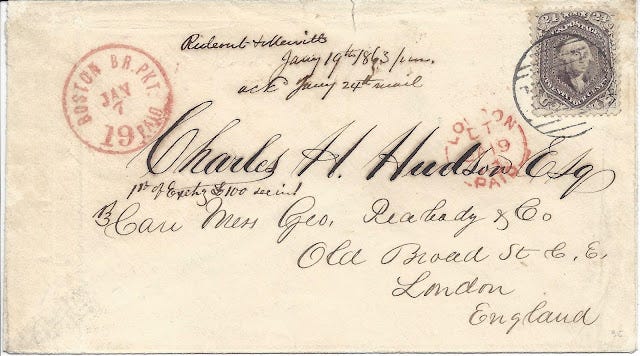 Rideout & Merritt
Jany 19th 1863 / pm.
ack Jany 24th mail
BOSTON BR. PKT.
JAN
7
19 PAID
24 24
LONDON
19
PAID
Charles H. Hudson Esq
1st of Exchg £100 recind
Care Mess Geo, Peabody & Co
Old Broad St E.C.
London
England